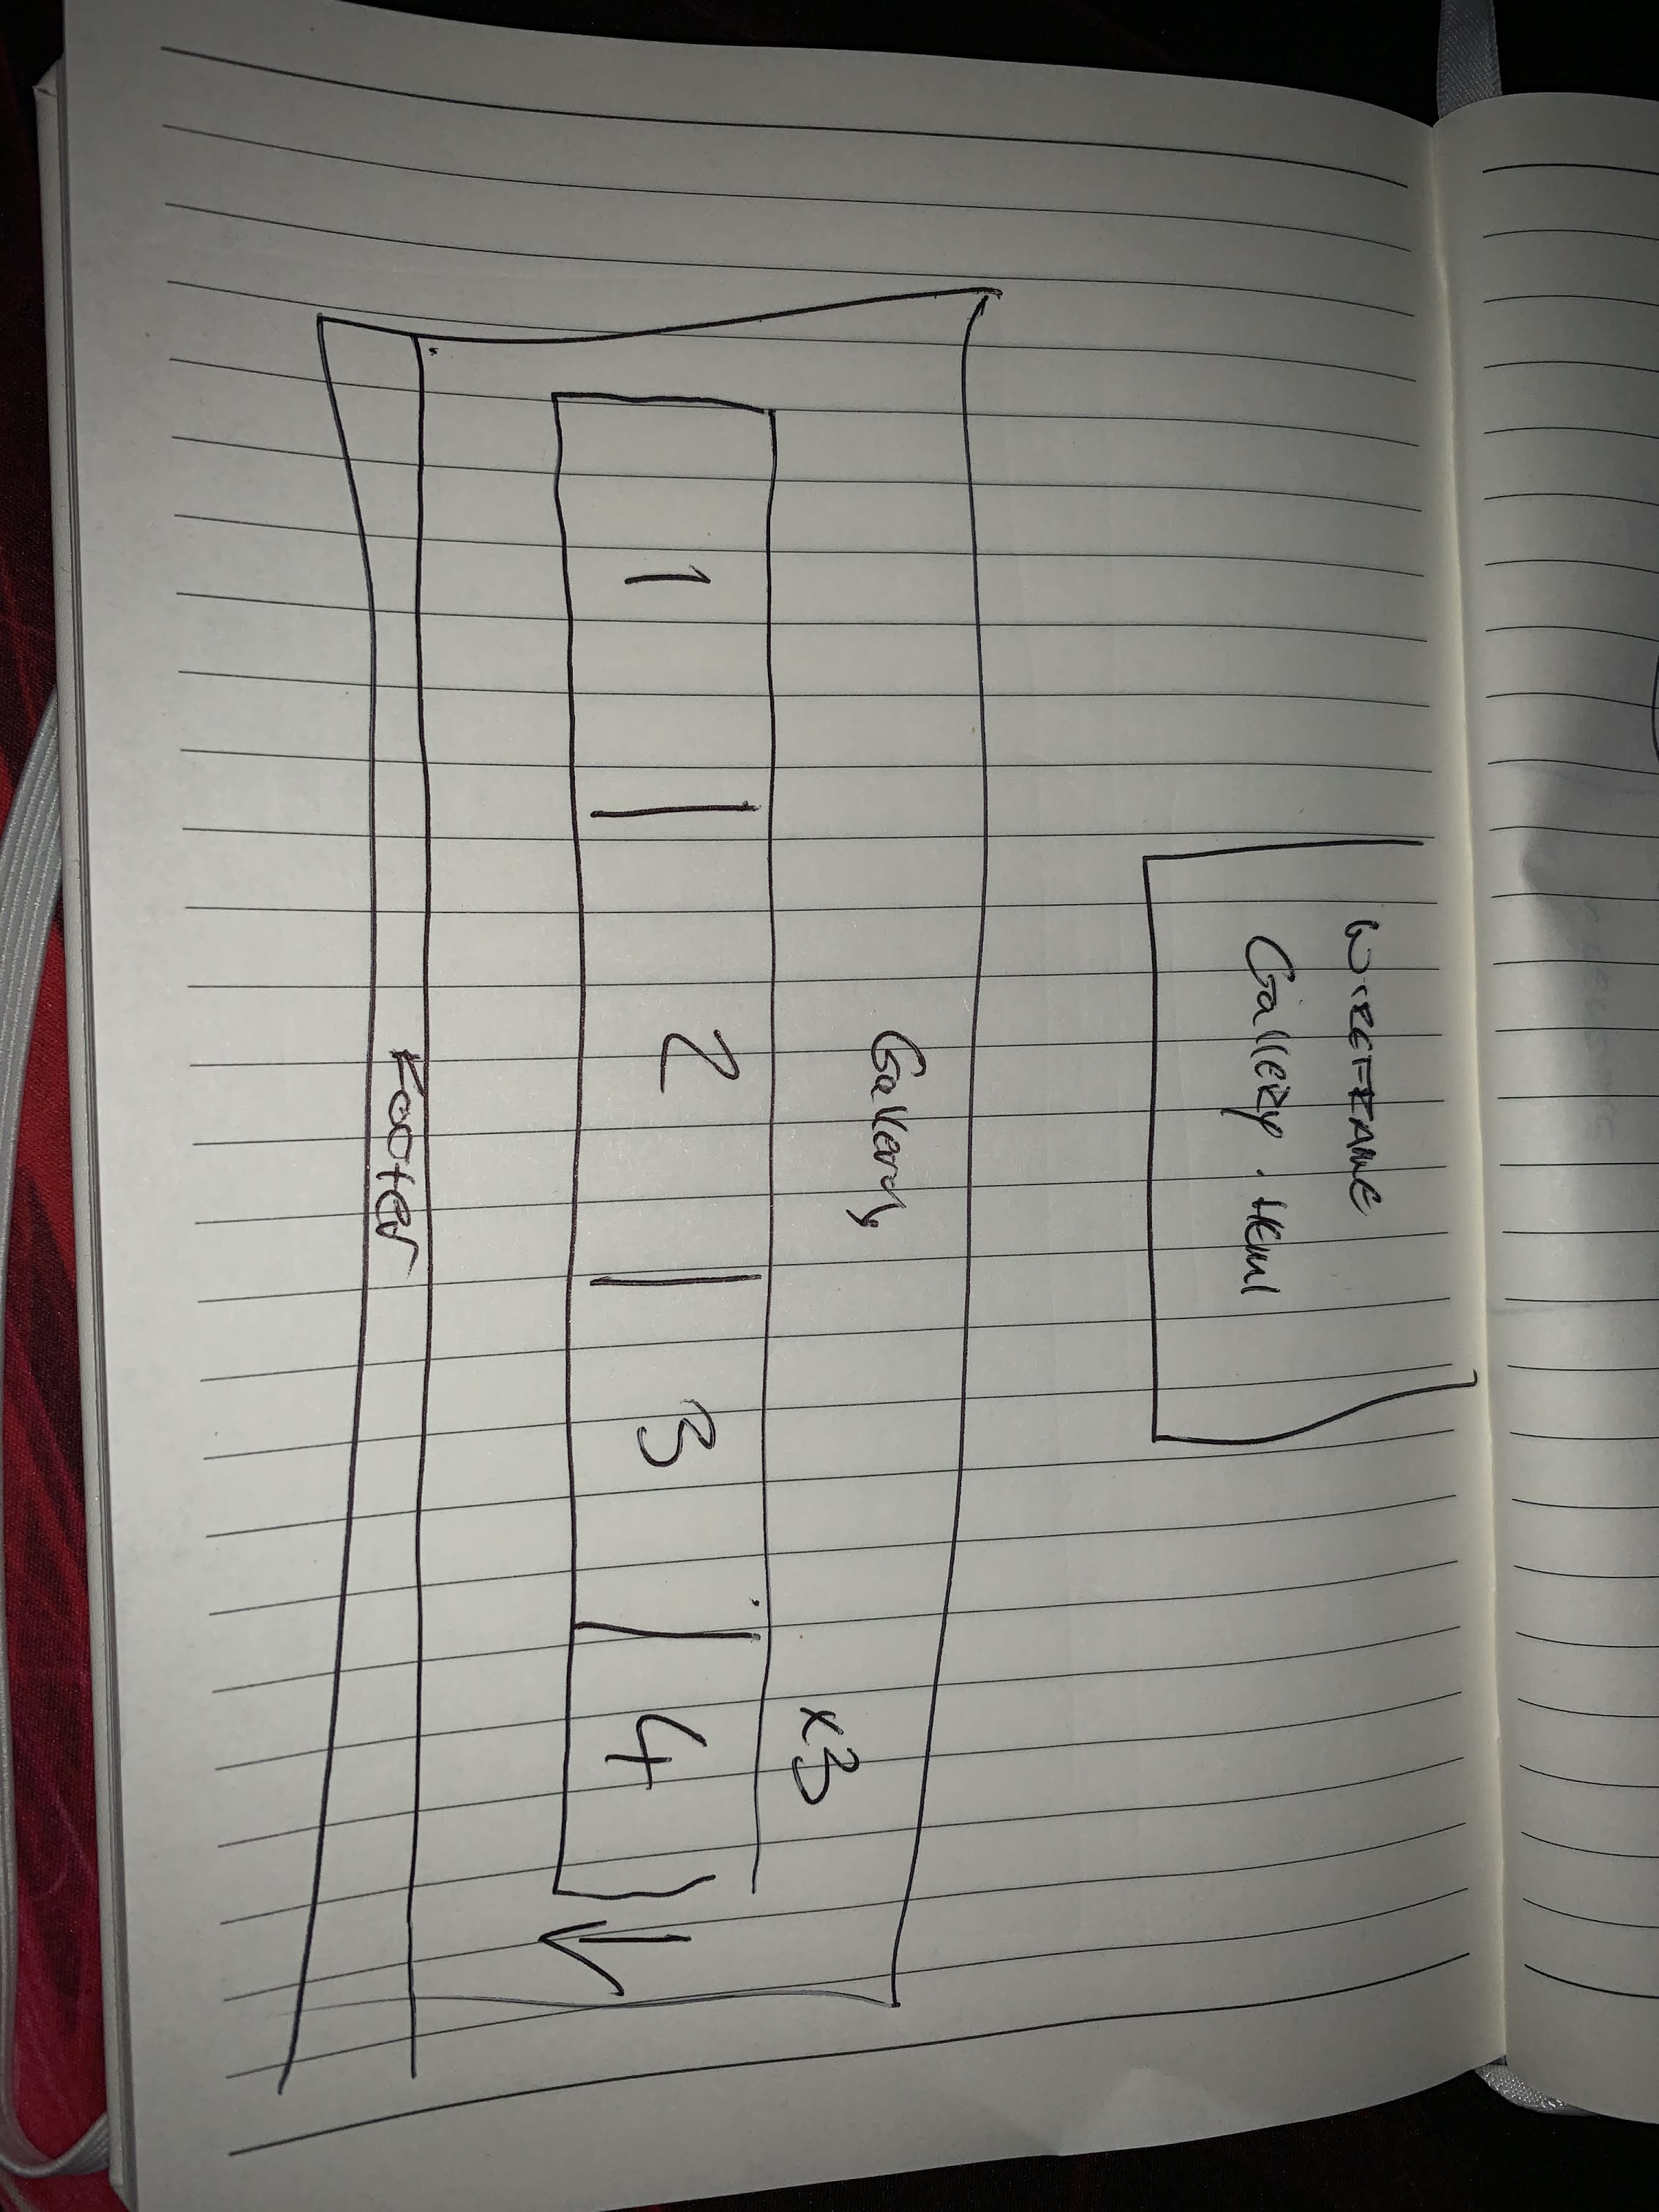 WIREFRAME
GallERy.HTML
Gallery
x3
1 2 3 4
Footer